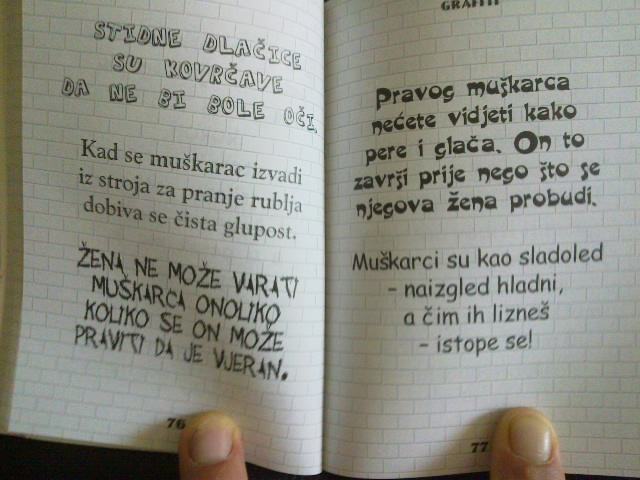 STIDNE DLAČICE
SU KOVRČAVE
DA NE BI BOLE OČI.
Kad se muškarac izvadi
iz stroja za pranje rublja
dobiva se čista glupost.
ŽENA NE MOŽE VARATI
MUŠKARCA ONOLIKO
KOLIKO SE ON MOŽE
PRAVITI DA JE VJERAN.
76
GRAFITI
Pravog muškarca
nećete vidjeti kako
pere i glača. On to
završi prije nego što se
njegova žena probudi.
Muškarci su kao sladoled
- naizgled hladni,
a čim ih lizneš
- istope se!
77